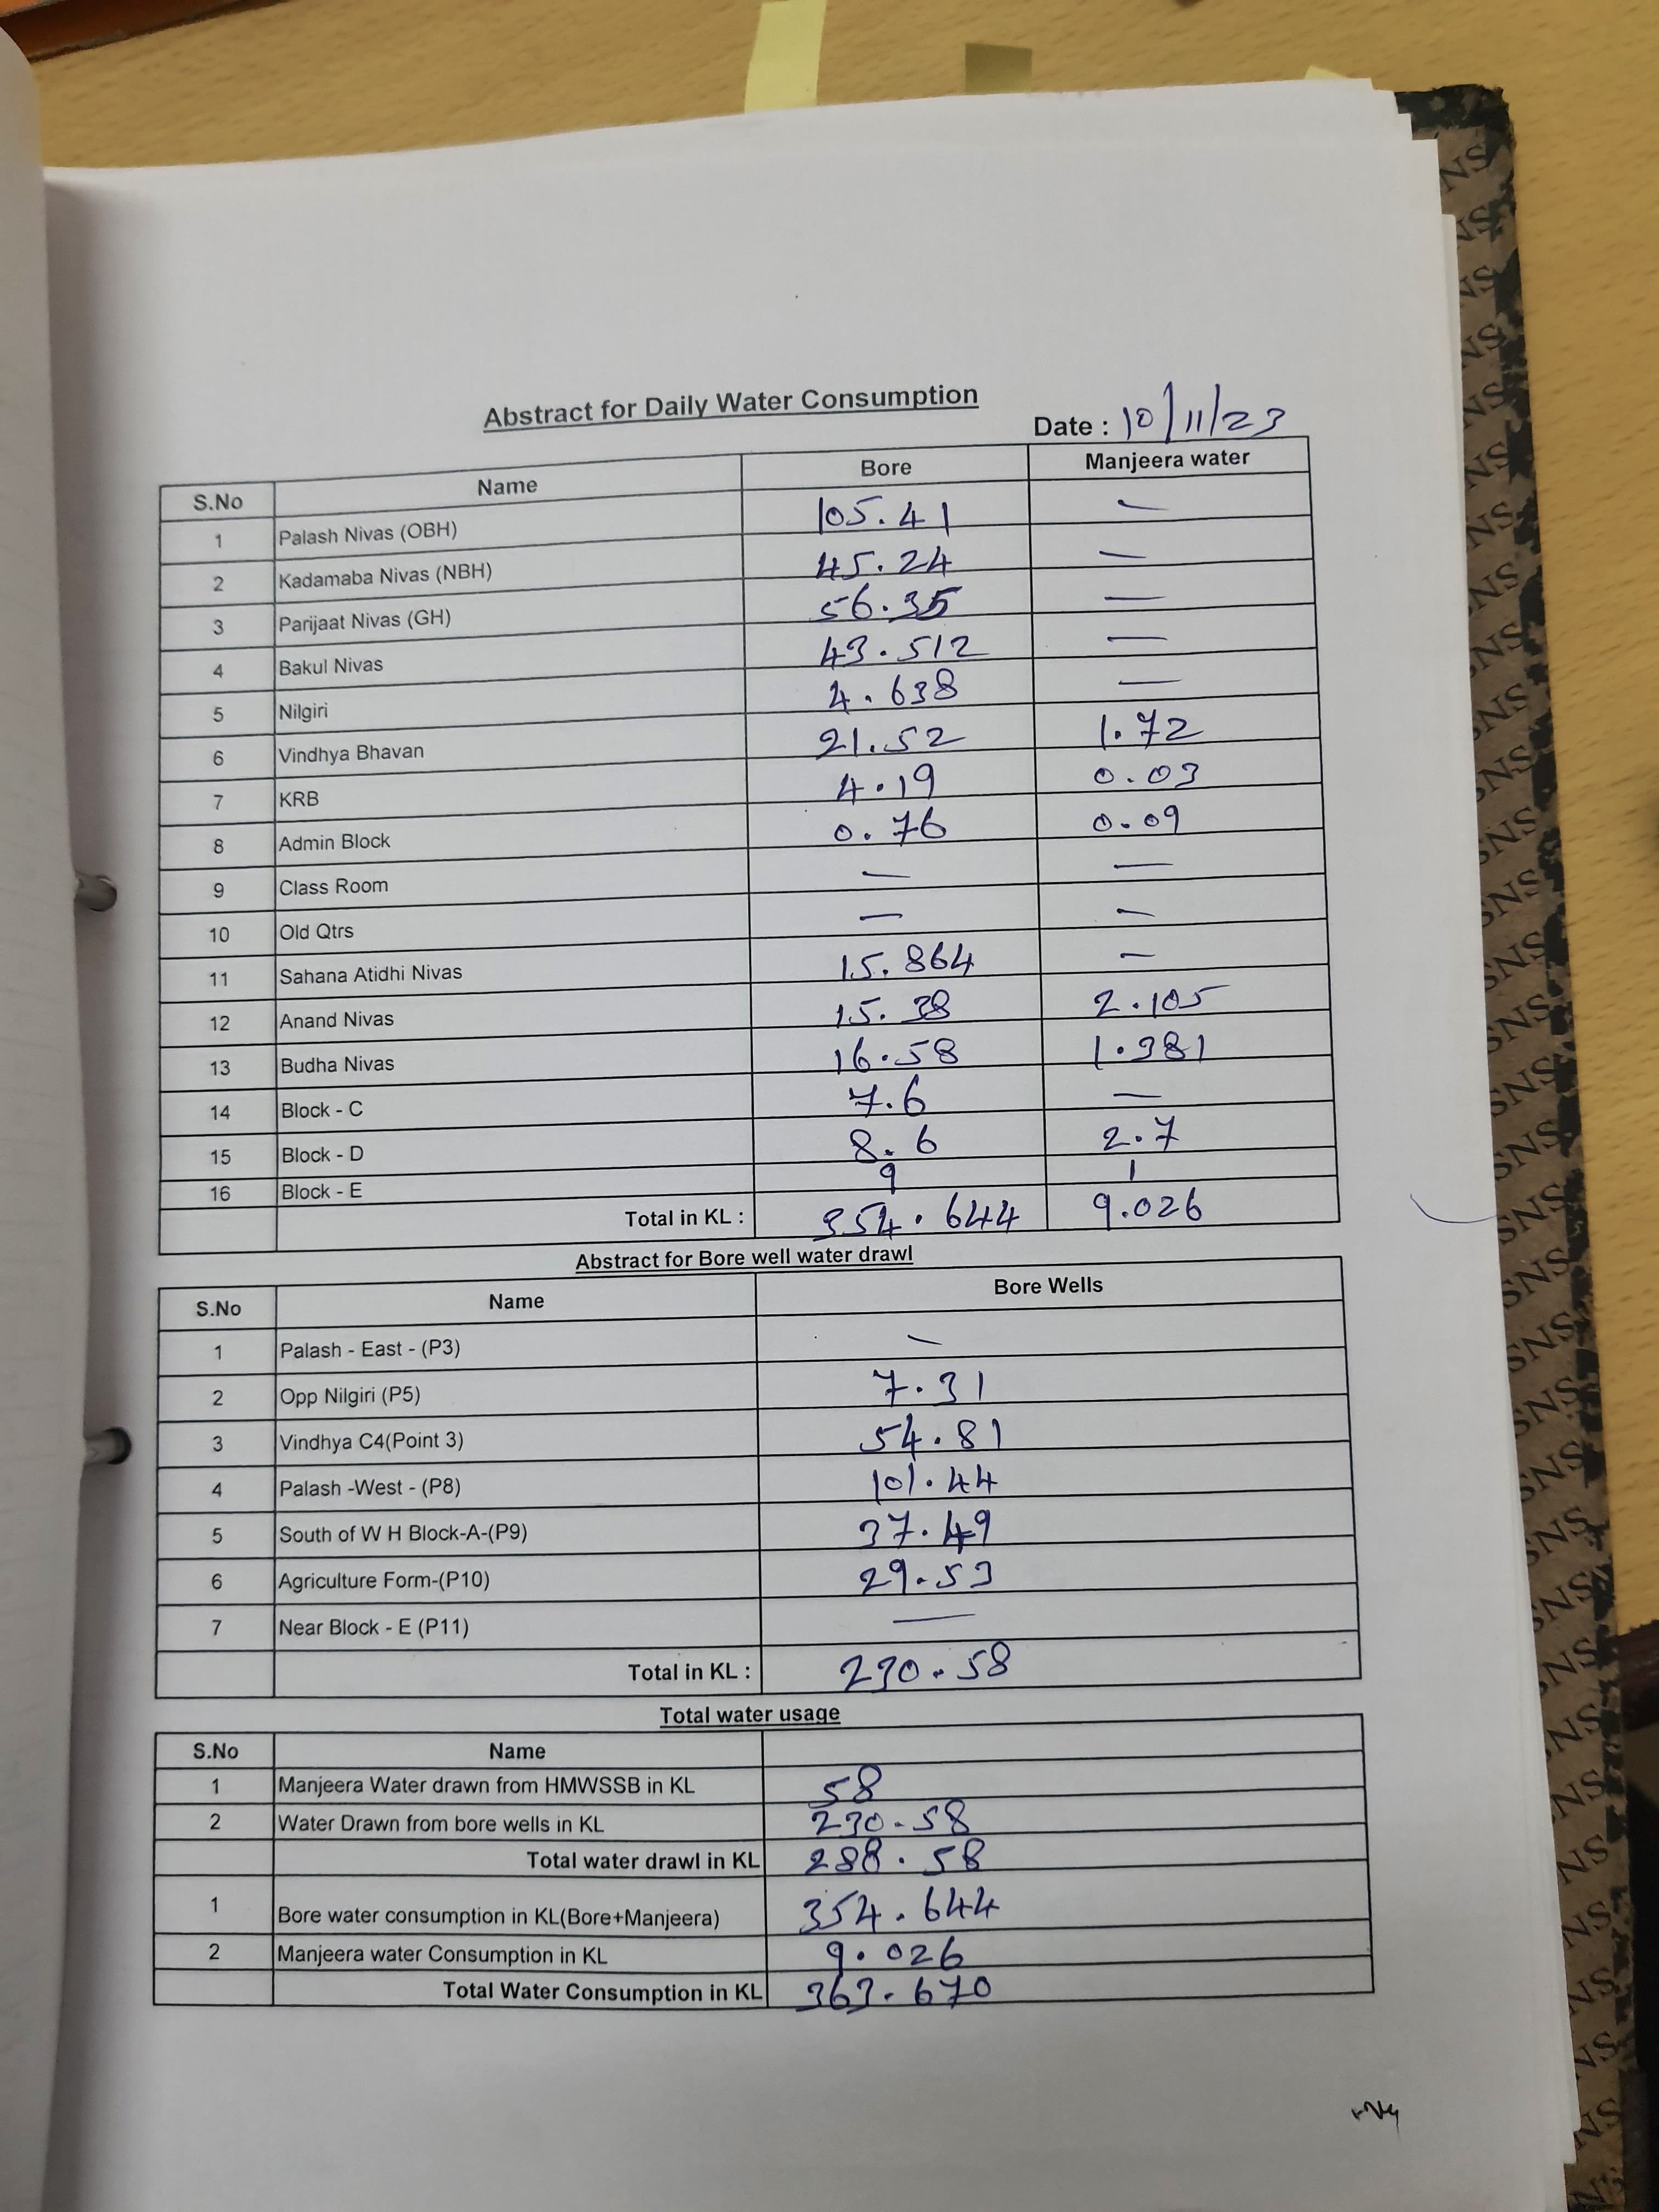 Abstract for Daily Water Consumption
Date : 10/11/23
S.No Name Bore Manjeera water
1 Palash Nivas (OBH) 105.41 —
2 Kadamaba Nivas (NBH) 45.24 —
3 Parijaat Nivas (GH) 56.35 —
4 Bakul Nivas 43.512 —
5 Nilgiri 4.638 —
6 Vindhya Bhavan 21.52 1.72
7 KRB 4.19 0.03
8 Admin Block 0.76 0.09
9 Class Room — —
10 Old Qtrs — —
11 Sahana Atidhi Nivas 15.864 —
12 Anand Nivas 15.38 2.105
13 Budha Nivas 16.58 1.381
14 Block - C 7.6 —
15 Block - D 8.6 2.7
16 Block - E 9 1
Total in KL : 354.644 9.026
Abstract for Bore well water drawl
S.No Name Bore Wells
1 Palash - East - (P3) —
2 Opp Nilgiri (P5) 7.31
3 Vindhya C4(Point 3) 54.81
4 Palash -West - (P8) 101.44
5 South of W H Block-A-(P9) 37.49
6 Agriculture Form-(P10) 29.53
7 Near Block - E (P11) —
Total in KL : 230.58
Total water usage
S.No Name
1 Manjeera Water drawn from HMWSSB in KL 58
2 Water Drawn from bore wells in KL 230.58
Total water drawl in KL 288.58
1 Bore water consumption in KL(Bore+Manjeera) 354.644
2 Manjeera water Consumption in KL 9.026
Total Water Consumption in KL 363.670